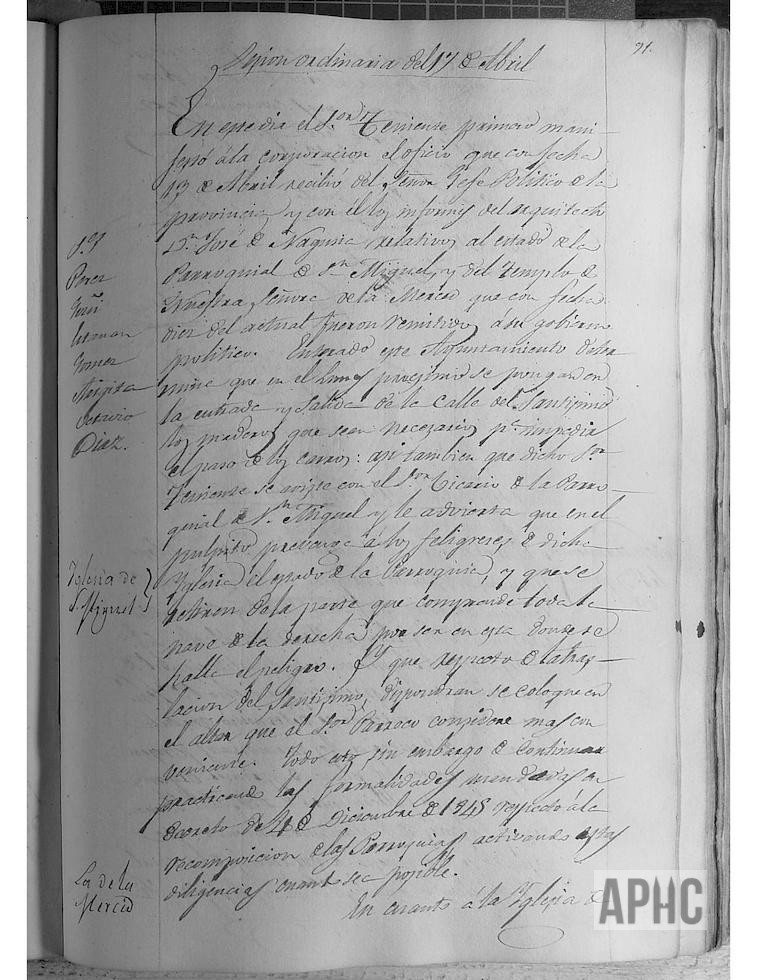 91.
Sesion ordinaria del 17 de Abril
En este dia el S.or Teniente primero mani-
festó á la corporacion el oficio que con fecha
13 de Abril recibió del Señor Gefe Politico de la
provincia y con el los informes del arquitecto
D.n José de Nagusia relativos al estado de la
Parroquial de S.n Miguel, y del Templo de
Nuestra Señora de la Merced que con fecha
diez del actual fueron remitidos á su gobierno
politico. Enterado este Ayuntamiento deter
mina que en el Lunes procsimo se pongan en
la entrada y salida de la Calle del Santisimo
los maderos que sean necesarios p.a impedir
el paso de los carros: asi tambien que dicho S.or
Teniente se aviste con el S.or Vicario de la Parro-
quial de S.n Miguel y le advierta que en el
pulpito prevenga á los feligreses de dicha
Yglesia el estado de la Parroquia, y que se
retiren de la parte que comprende toda la
nave de la derecha por ser en esta donde se
halla el peligro. Y que respecto de la tras-
lacion del Santisimo, dispondran se coloque en
el altar que el S.or Parroco considere mas con
veniente. Todo esto sin embargo de continuar
practicando las formalidades mandadas en
decreto de 4 de Diciembre de 1845 respecto á la
recomposicion de las Parroquias activando estas
diligencias cuanto sea posible.
En cuanto á la Yglesia de
S.es
Perez
Goñi
Guzman
Gomez
Octavio
Diaz.
Yglesia de
S. Miguel
La de la
Merced
APHC